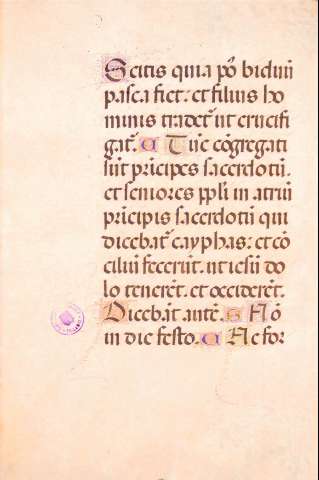 Scitis quia pō biduū
pasca fiet: et filius ho
minis tradet̄ ut crucifi
gat̄. Tūc cōgregati
sūt prīcipes sacerdotū.
et seniores ppl̄i in atriū
prīcipis sacerdotū qui
dicebat̄ cayphas: et cō
ciliū fecerūt. ut iesū do
lo tenerēt. et occiderēt.
Dicebāt autē. Nō
in die festo. Ne for